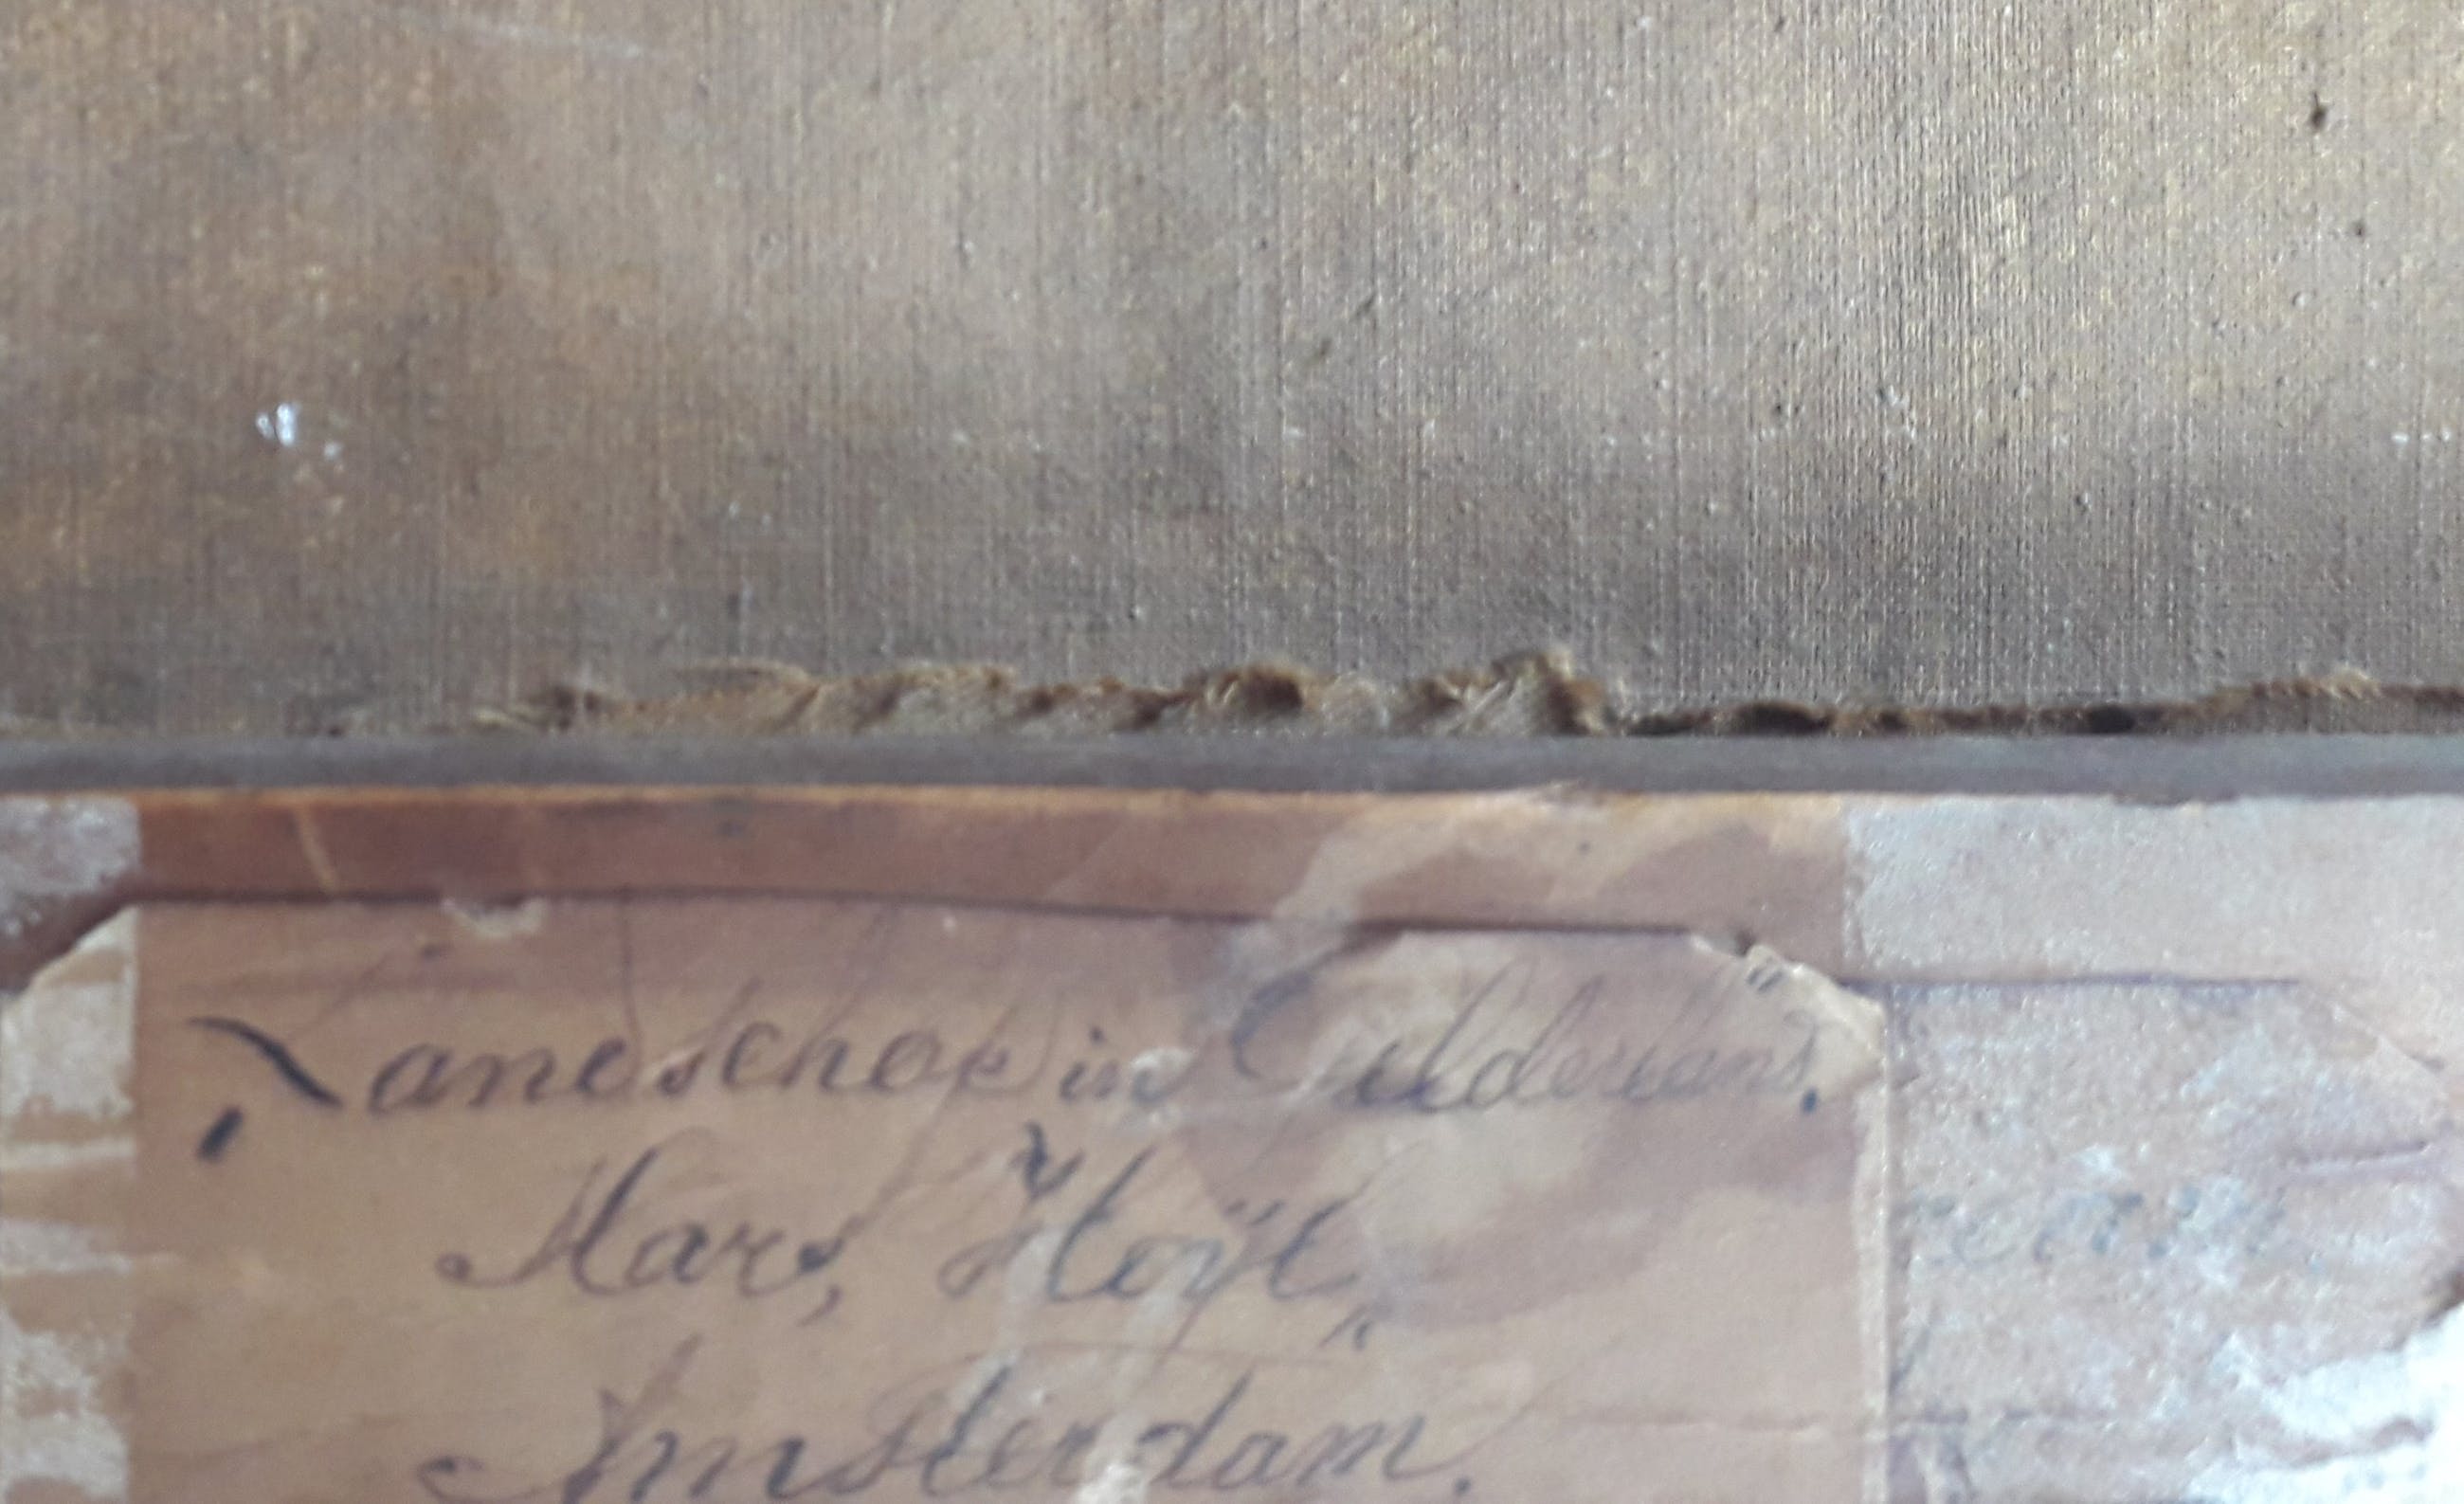 Landschap in Gelderland.
Mars, Hoÿt,
Amsterdam.